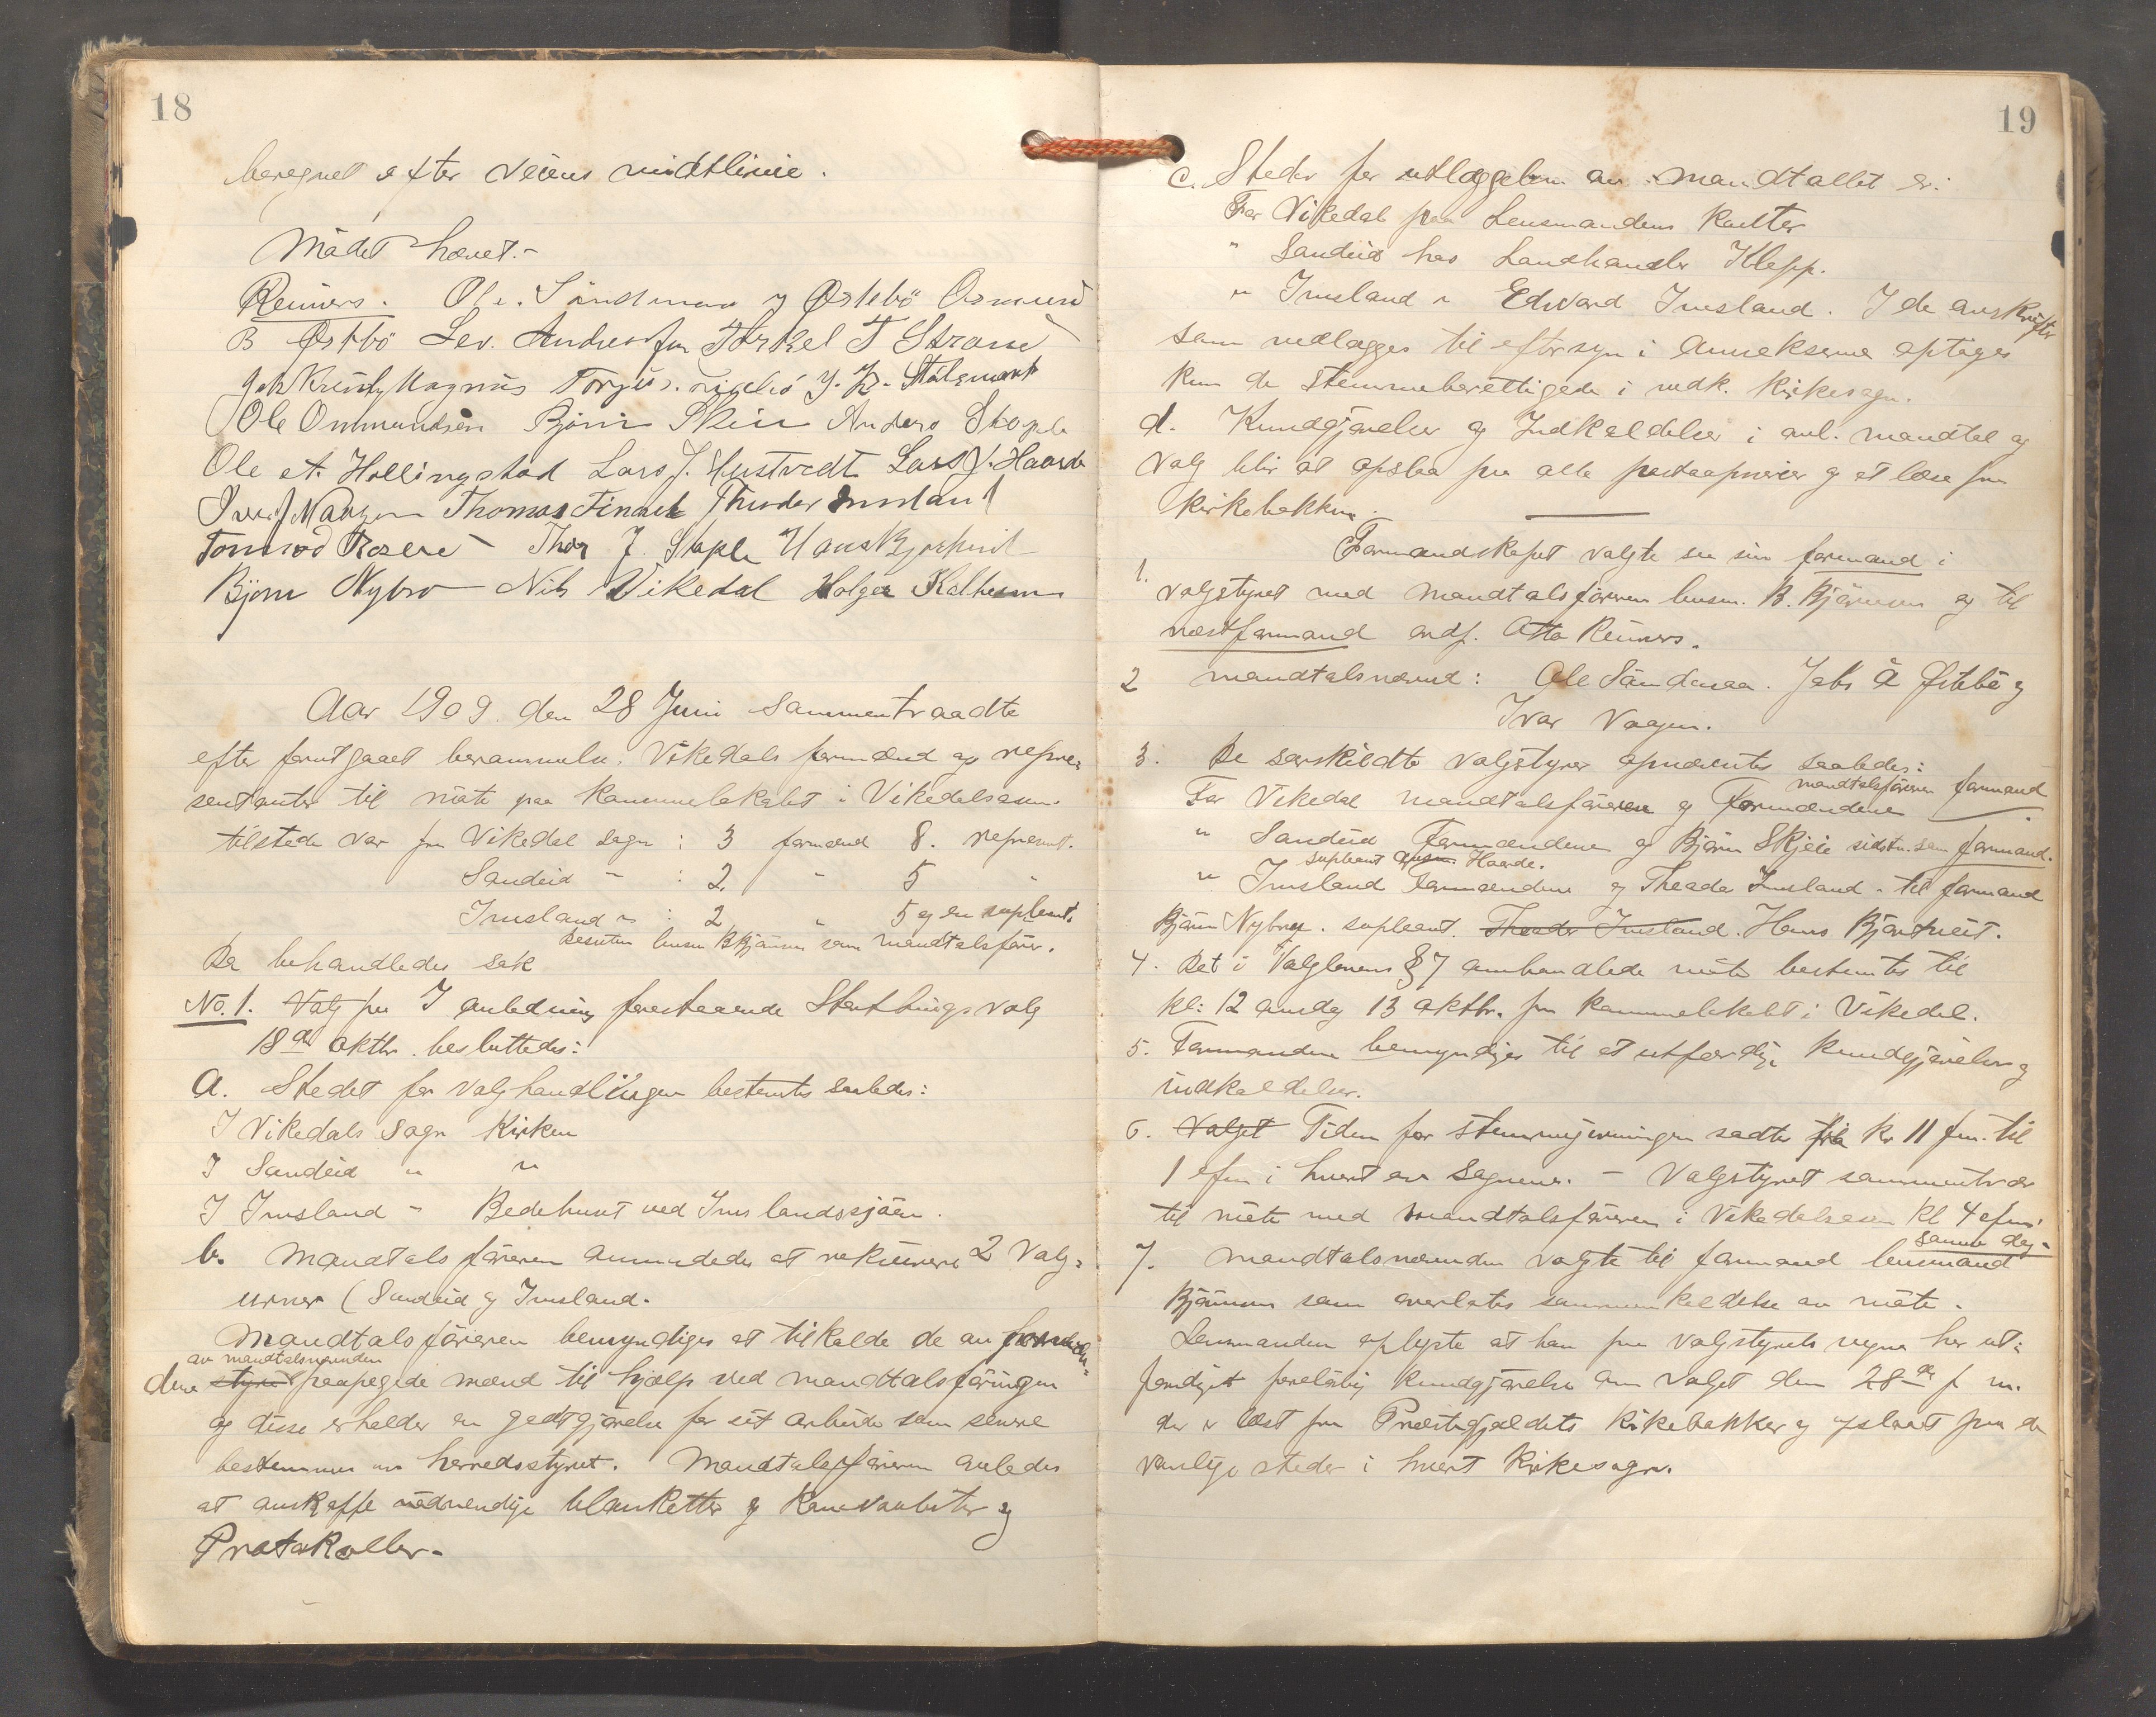 18
beregnet efter veiens midtlinie.
Mödet hævet.-
Reiners. Ole Söndenaa og Östebö Osmund
B Östbö Sev. Andreasen Torkel T Strand
Magnus Torgus. J. K. Stålemark
Ole Ommundsen Björn Skeie Anders Stople
Ole A. Hellingstad Lars J. Hustvedt Lars J. Haarde
Iver J Thomas Finnvik Theodor Imsland
Tormod Thor J. Stople Hans Bjørtveit
Björn Nybro Nils Vikedal Holger Kalheim
Aar 1909. den 28 Juni sammentraadte
efter forutgaaet berammelse, Vikedals formænd og repræ-
sentanter til möte paa kommunelokalet i Vikedalsøen.
tilstede var fra Vikedal sogn : 3 formænd 8. repræsent.
Sandeid " : 2 " 5 "
Imsland " : 2 " 5 og en supleant.
Desuten lensm B Bjørnsen som mandtalsfører.
Da behandledes sak
No. 1. Valg paa I anledning forestaaende Storthingsvalg
18de oktbr. besluttedes:
a. Stedet for valghandlingen bestemtes saaledes:
I Vikedals sogn Kirken
I Sandeid " "
I Imsland " Bedehuset ved Imslandssjöen.
b. Mandtalsföreren anmodedes at rekvirere 2 valg-
urner (Sandeid og Imsland.
Mandtalsföreren bemyndiges at tilkalde de av formænd-
av mandtalsnævnden
dene styre paapegede mænd til hjælp ved mandtalsföringen
og disse erholder en godtgjörelse for sit arbeide som senere
bestemmes av herredsstyret. Mandtalsföreren anledes
at anskaffe nödvendige blanketter og konvolutter og
Protokoller.-
19
c. Steder for utlæggelsen av mandtallet er:
For Vikedal paa Lensmandens Kontor
" Sandeid hos Landhandler Klepp.
" Imsland " Edvard Imsland. I de avskrifter
som utlægges til eftersyn i annekserne optages
kun de stemmeberettigede i vedk. kirkesogn.
d. Kundgjörelser og Indkaldelser i anl. mandtal og
valg blir at opslaa paa alle postaapnerier og at læse fra
kirkebakken.
1. Formandskapet valgte som sin formand i
valgstyret med mandtalsföreren lensm. B. Bjørnsen og til
næstformand ordf. Otto Reiners.
2 mandtalsnævnd: Ole Söndenaa. Jabs Å Östebö og
Ivar Vaagen.
3. De særskildte valgstyrer opnævntes saaledes:
mandtalsföreren formand
For Vikedal mandtalsföreren og Formændene
" Sandeid Formændene og Björn Skjeie sidstn. som formand.
supleant Haarde.
" Imsland Formændene og Theodor Imsland - til formand
Björn Nybru. supleant. Theodor Imsland. Hans Bjørtveit.
4. Det i Valglovens § 7 omhandlede möte bestemtes til
kl: 12 onsdag 13 oktbr. paa kommunelokalet i Vikedal.
5. Formanden bemyndiges til at utfærdige kundgjörelse og
indkaldelser.
6. Valget Tiden for stemmegivningen sættes fra kl 11 fm. til
1 efm i hvert av sognene. - Valgstyret sammentræder
til möte med mandtalsföreren i Vikedalsøen kl 4 efm.
samme dag.
7. Mandtalsnævnden valgte til formand lensmand
Bjørnsen som overlates sammenkaldelse av möte.
Lensmanden oplyste at han paa valgstyrets vegne har ut-
færdiget foreløbig kundgjörelse om valget den 28de f m.
der er læst fra Præstegjældets kirkebakker og opslaat paa de
vanlige steder i hvert kirkesogn.